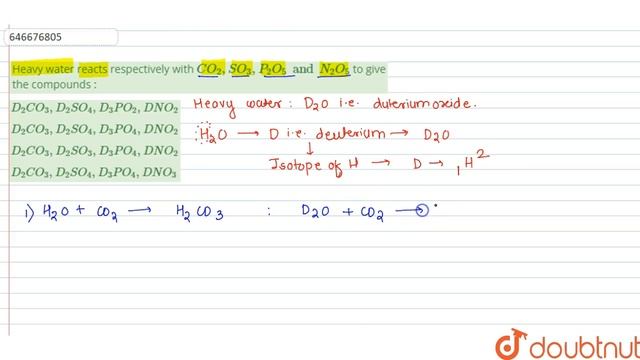 646676805
Heavy water reacts respectively with CO₂, SO₃, P₂O₅ and N₂O₅ to give
the compounds :
D₂CO₃, D₂SO₄, D₃PO₂, DNO₂
D₂CO₃, D₂SO₄, D₃PO₄, DNO₂
D₂CO₃, D₂SO₃, D₃PO₄, DNO₂
D₂CO₃, D₂SO₄, D₃PO₄, DNO₃
Heavy water : D₂O i.e. duterium oxide.
H₂O → D i.e. deuterium → D₂O
↓
Isotope of H → D → ₁H²
1) H₂O + CO₂ → H₂CO₃ : D₂O + CO₂ →
doubtnut